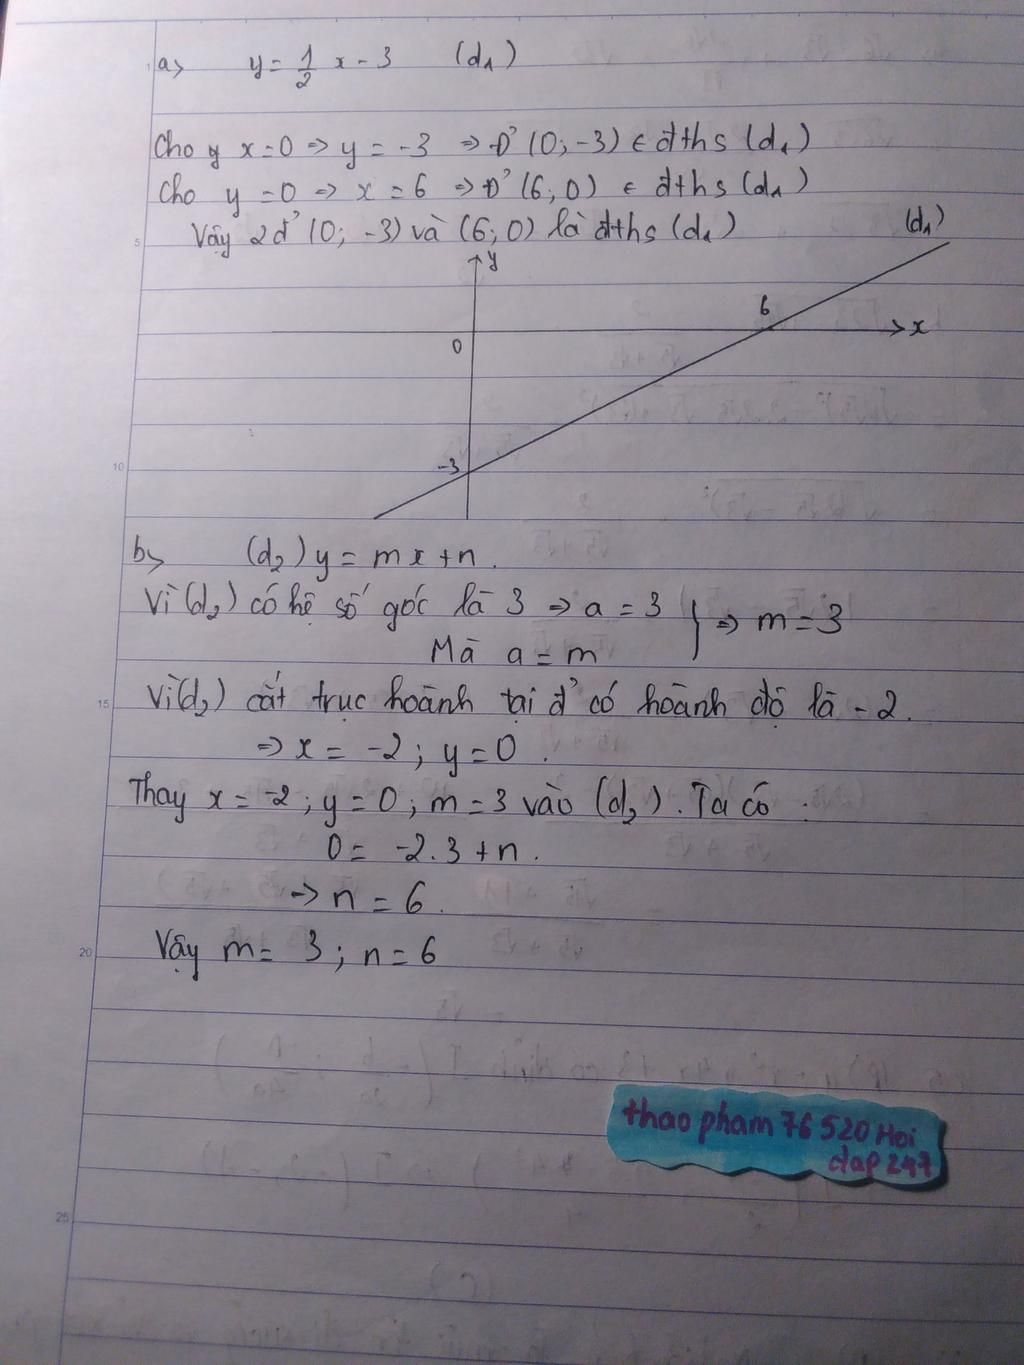 a> y = 1/2 x - 3 (d₁)
Cho x = 0 => y = -3 => Đ' (0; -3) ∈ đths (d₁)
Cho y = 0 => x = 6 => Đ' (6; 0) ∈ đths (d₁)
Vậy 2đ' (0; -3) và (6; 0) là đths (d₁)
(d₁)
y
6
0
x
-3
b> (d₂) y = mx + n.
Vì (d₂) có hệ số góc là 3 => a = 3 } => m = 3
Mà a = m
Vì (d₂) cắt trục hoành tại đ' có hoành độ là -2.
=> x = -2; y = 0.
Thay x = -2; y = 0; m = 3 vào (d₂). Ta có:
0 = -2.3 + n.
-> n = 6.
Vậy m = 3; n = 6
thao pham 76 520 Hoi
dap 247
5
10
15
20
25